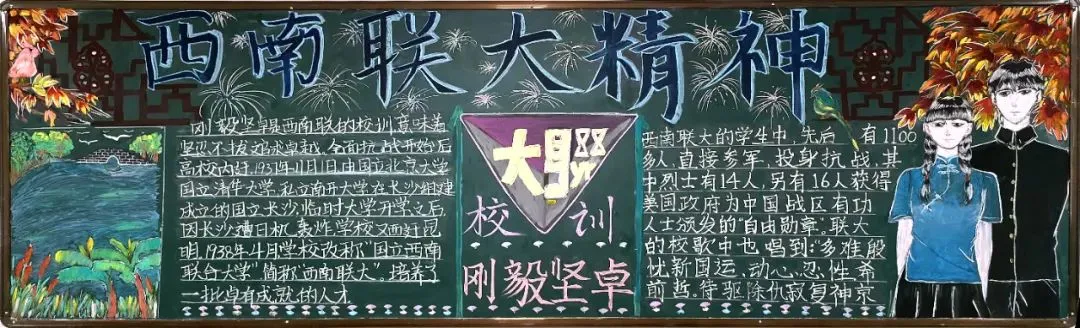 西南联大精神
刚毅坚卓是西南联的校训,意味着
坚忍不拔,追求卓越,全面抗战开始后
高校内迁,1937年11月1日由国立北京大学
国立清华大学,私立南开大学在长沙组建
成立的国立长沙临时大学开学之后,
因长沙遭日机轰炸学校又西迁昆
明,1938年4月学校改称"国立西南
联合大学"简称"西南联大"。培养了
一批卓有成就的人才
大联
校训
刚毅坚卓
西南联大的学生中,先后有1100
多人直接参军,投身抗战,其
中烈士有14人,另有16人获得
美国政府为中国战区有功
人士颁发的"自由勋章"。联大
的校歌中也唱到:"多难殷
忧新国运,动心忍性希
前哲。待驱除仇寇复神京